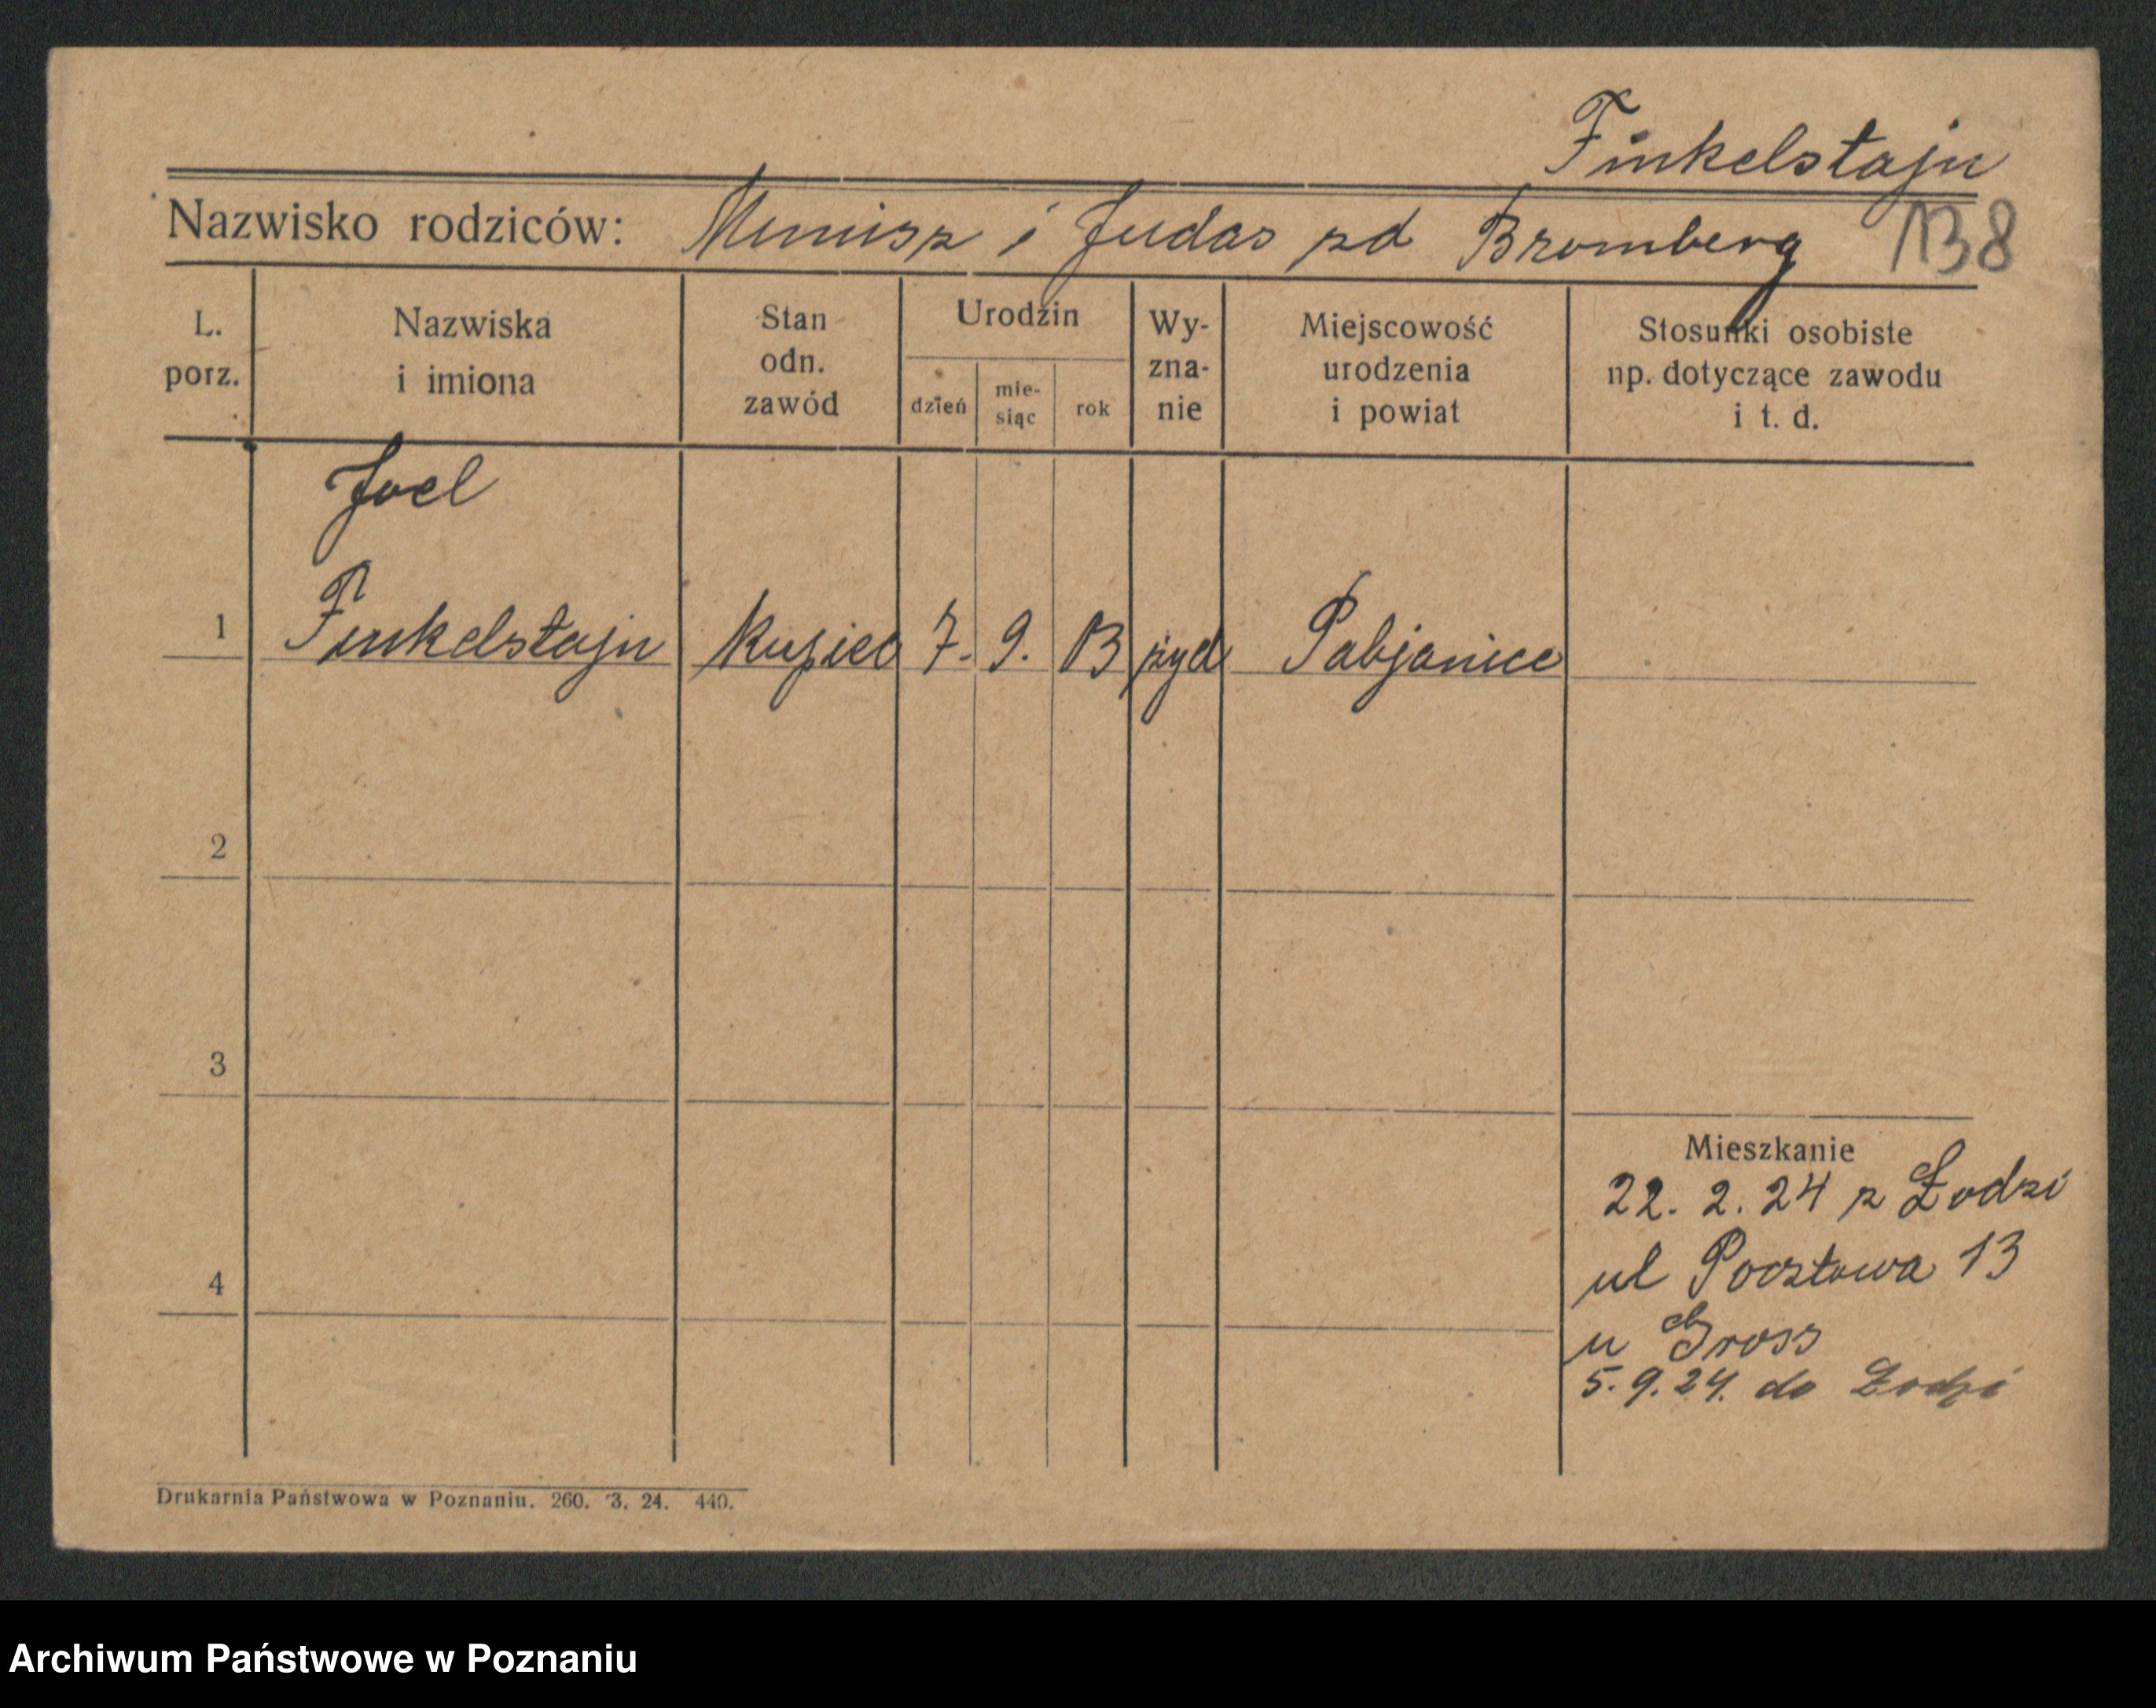 Finkelstajn
Nazwisko rodziców: i Judas zd Bromberg 138
L. porz.
Nazwiska i imiona
Stan odn. zawód
Urodzin
dzień
mie-
siąc
rok
Wy-
zna-
nie
Miejscowość
urodzenia
i powiat
Stosunki osobiste
np. dotyczące zawodu
i t. d.
Joel
1 Finkelstajn Kupiec 7. 9. 03 żyd Pabjanice
2
3
4
Mieszkanie
22. 2. 24 z Łodzi
ul Pocztowa 13
u Gross
5. 9. 24. do Łodzi
Drukarnia Państwowa w Poznaniu. 260. 3. 24. 440.
Archiwum Państwowe w Poznaniu